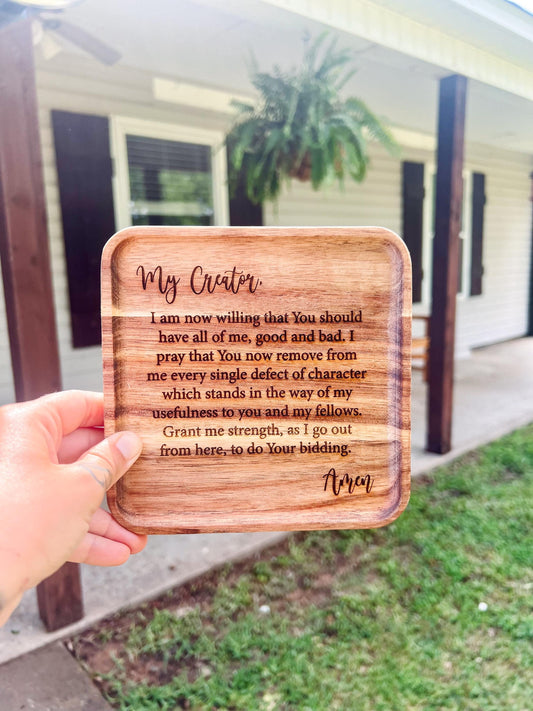 My Creator,
I am now willing that You should
have all of me, good and bad. I
pray that You now remove from
me every single defect of character
which stands in the way of my
usefulness to you and my fellows.
Grant me strength, as I go out
from here, to do Your bidding.
Amen